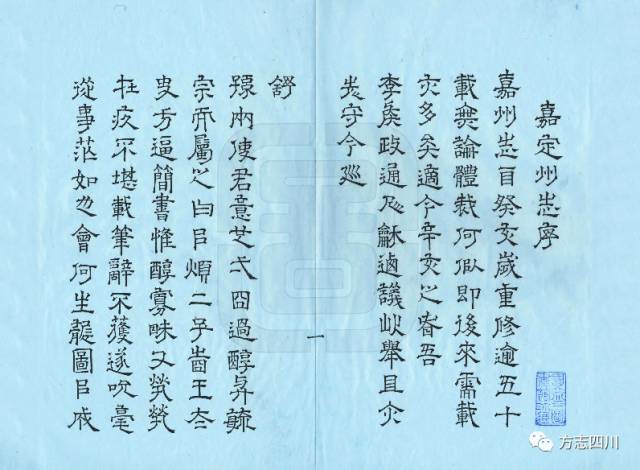 嘉定州志序
嘉州志自癸亥歲重修逾五十
載無論體裁何似即後來需載
亦多矣適今辛亥之春吾
李侯政通人龢議此舉且亦
先守今巡
舒
內使君意也過醇
宗而屬之曰以煩二子當王太
史方逼簡書惟醇寡昧又煢煢
在疚不堪載筆辭不獲遂吮毫
從事茫如也會何生龍圖以成
一
方志四川